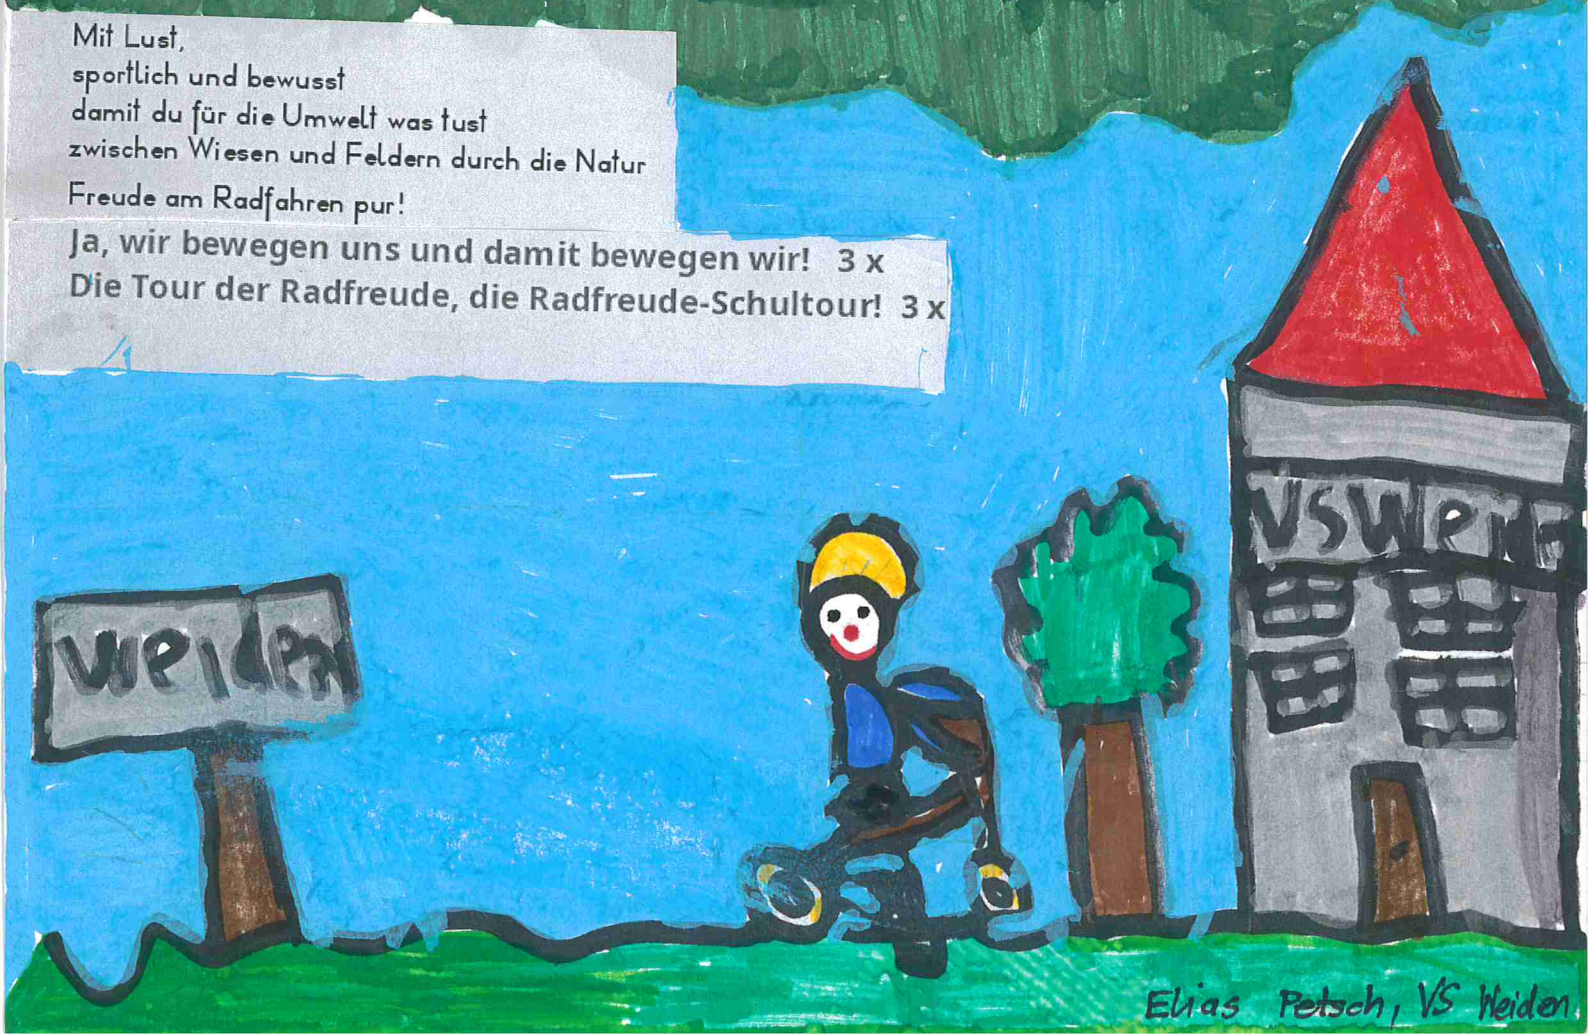 Mit Lust,
sportlich und bewusst
damit du für die Umwelt was tust
zwischen Wiesen und Feldern durch die Natur
Freude am Radfahren pur!
Ja, wir bewegen uns und damit bewegen wir! 3 x
Die Tour der Radfreude, die Radfreude-Schultour! 3 x
weiden
Elias Petsch, VS Weiden